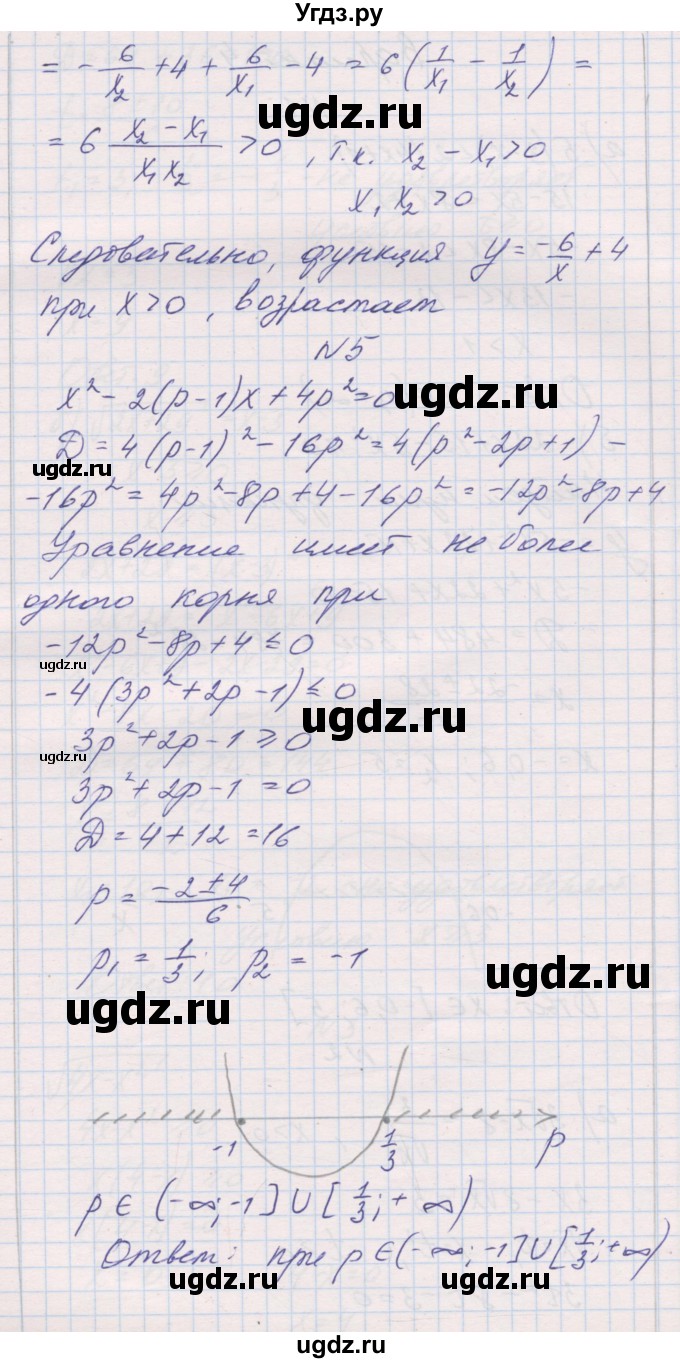 Угдз.ру
= - 6/x₂ + 4 + 6/x₁ - 4 = 6(1/x₁ - 1/x₂) =
ugdz.ru
= 6 (x₂ - x₁)/(x₁x₂) > 0, т.к. x₂ - x₁ > 0
x₁x₂ > 0
Следовательно, функция y = -6/x + 4
при x > 0, возрастает
N5
x² - 2(p-1)x + 4p² = 0
ugdz.ru
Д = 4(p-1)² - 16p² = 4(p² - 2p + 1) -
ugdz.ru
- 16p² = 4p² - 8p + 4 - 16p² = -12p² - 8p + 4
Уравнение имеет не более
одного корня при
-12p² - 8p + 4 ≤ 0
ugdz.ru
-4(3p² + 2p - 1) ≤ 0
ugdz.ru
3p² + 2p - 1 ≥ 0
ugdz.ru
3p² + 2p - 1 = 0
Д = 4 + 12 = 16
p = (-2 ± 4)/6
p₁ = 1/3; p₂ = -1
ugdz.ru
ugdz.ru
-1 1/3 p
p ∈ (-∞; -1] U [1/3; +∞)
Ответ: при p ∈ (-∞; -1] U [1/3; +∞)
ugdz.ru
ugdz.ru
ugdz.ru